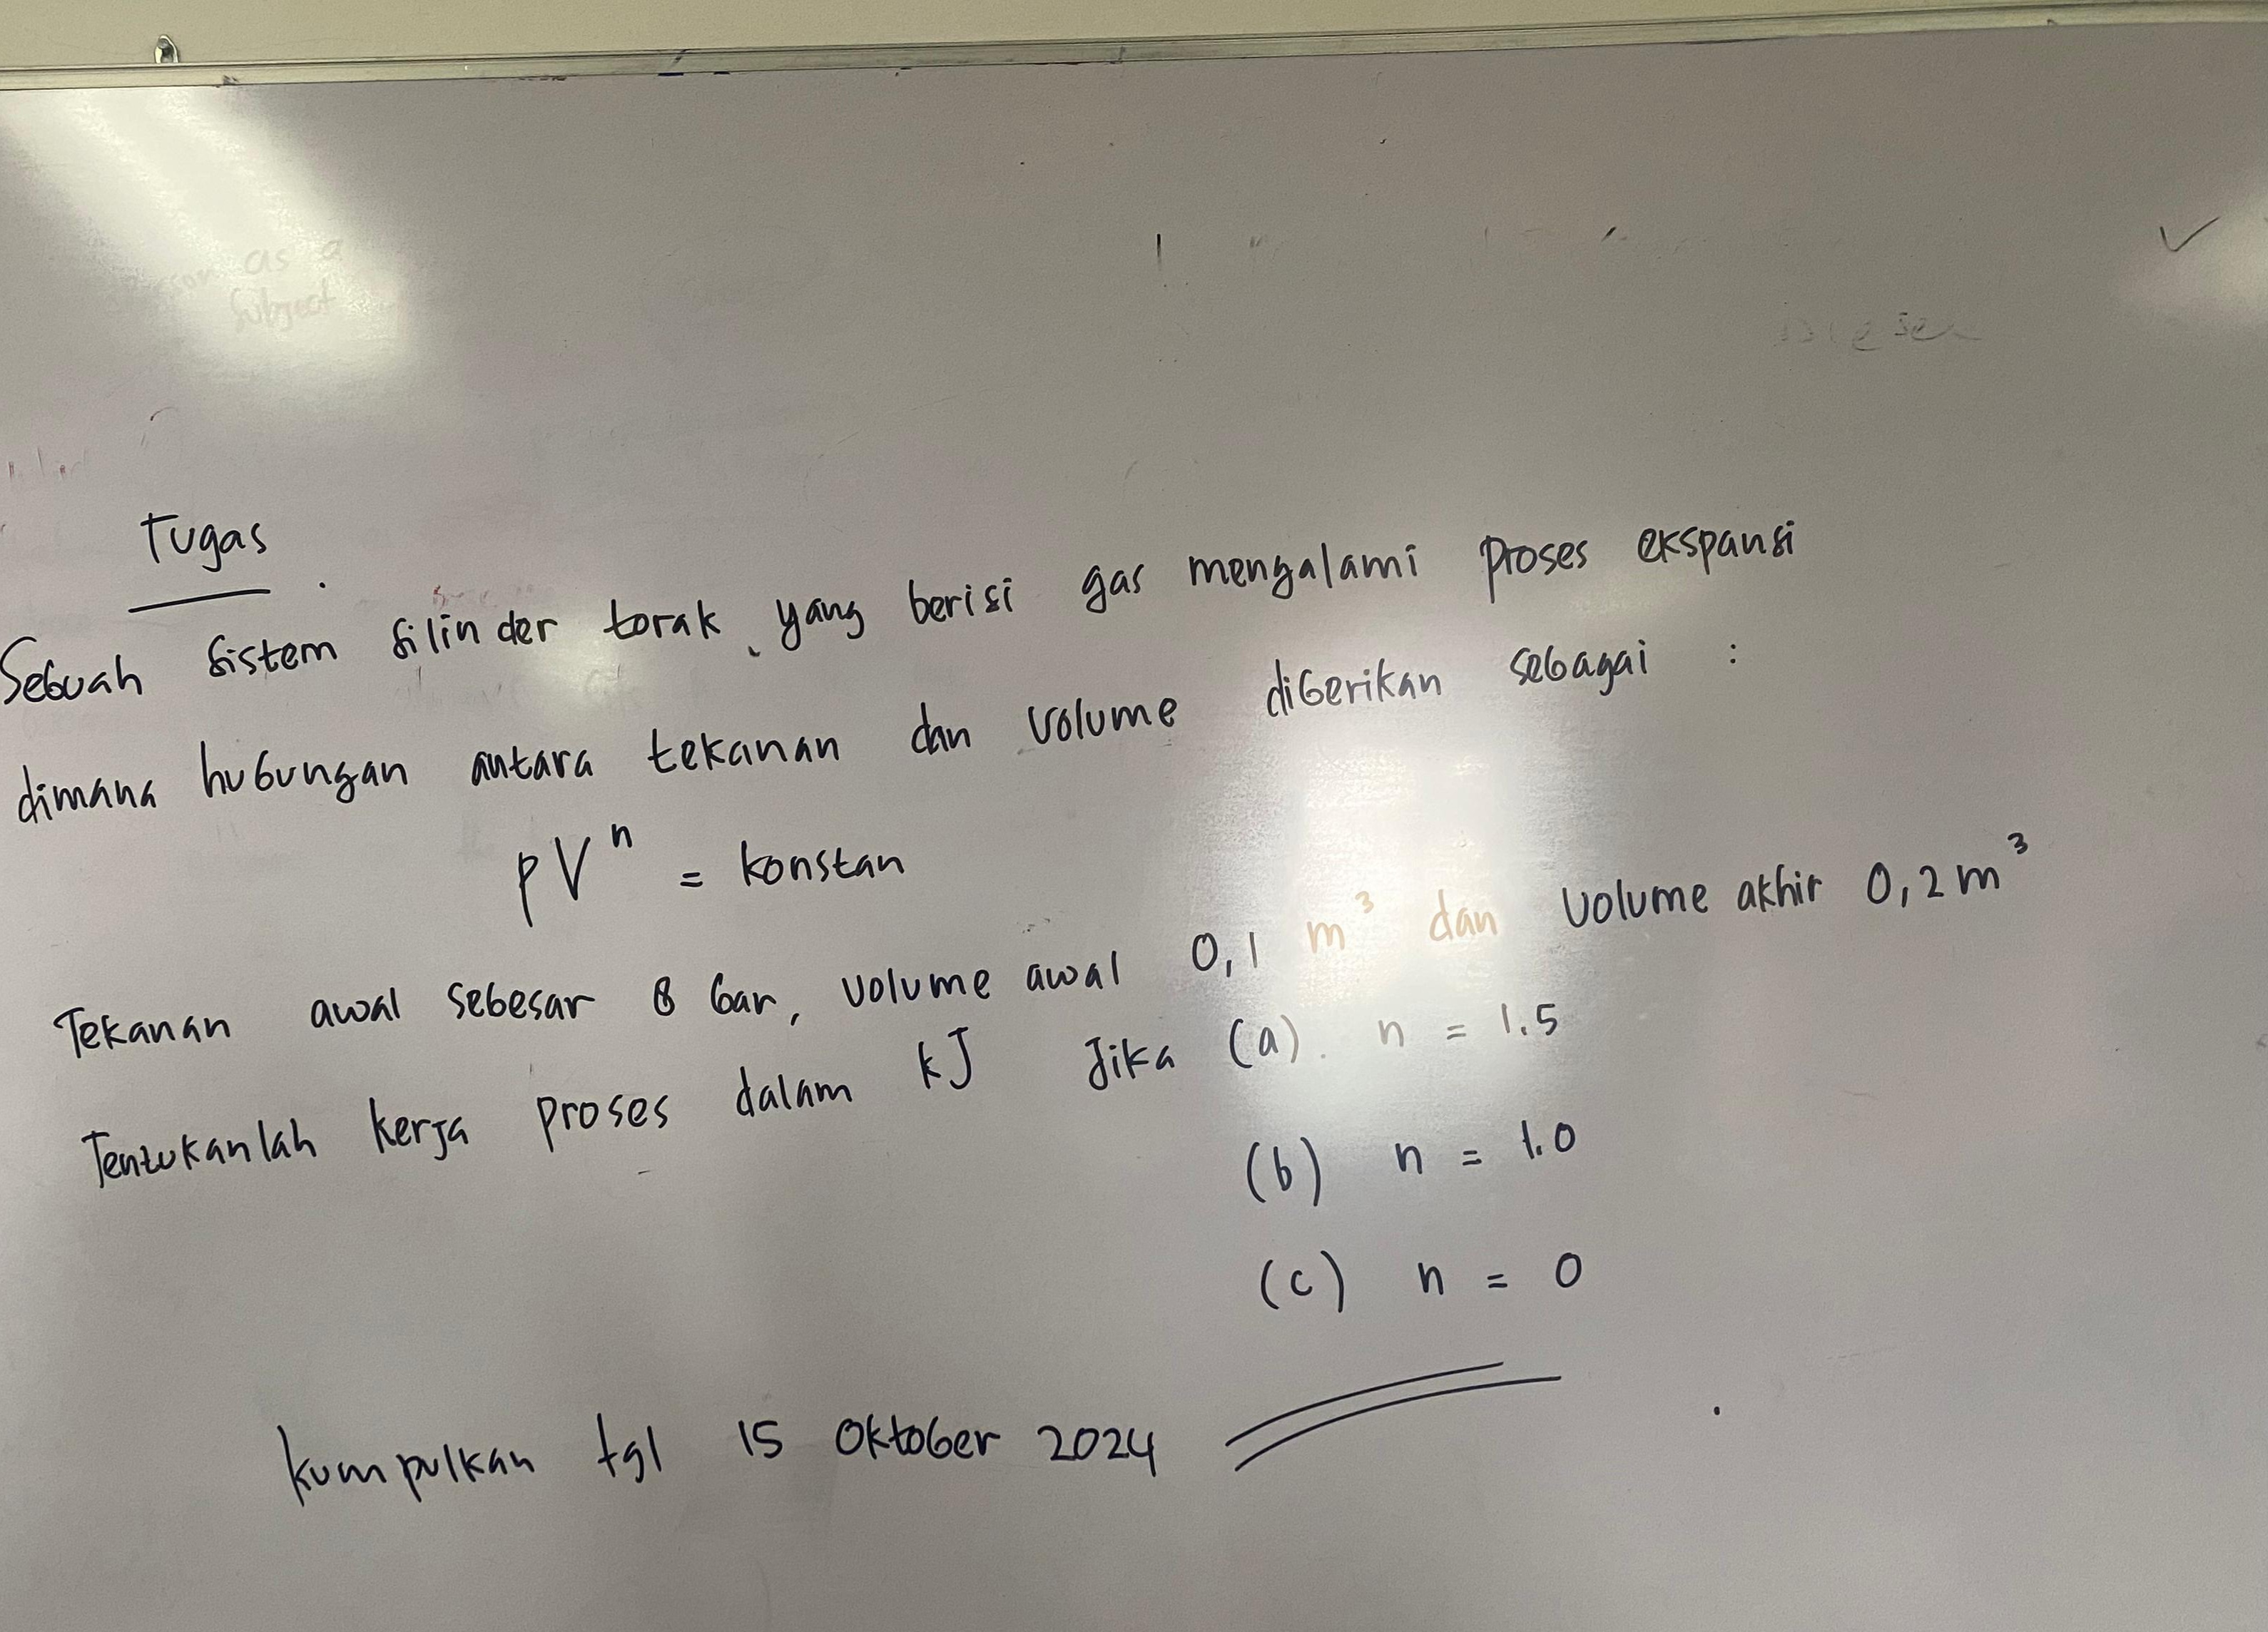 as a
subject
Tugas
Sebuah sistem silinder torak, yang berisi gas mengalami proses ekspansi
dimana hubungan antara tekanan dan volume diberikan sebagai :
pVⁿ = konstan
Tekanan awal sebesar 8 bar, volume awal 0,1 m³ dan volume akhir 0,2 m³
Tentukanlah kerja proses dalam kJ Jika (a). n = 1.5
(b) n = 1.0
(c) n = 0
kumpulkan tgl 15 Oktober 2024